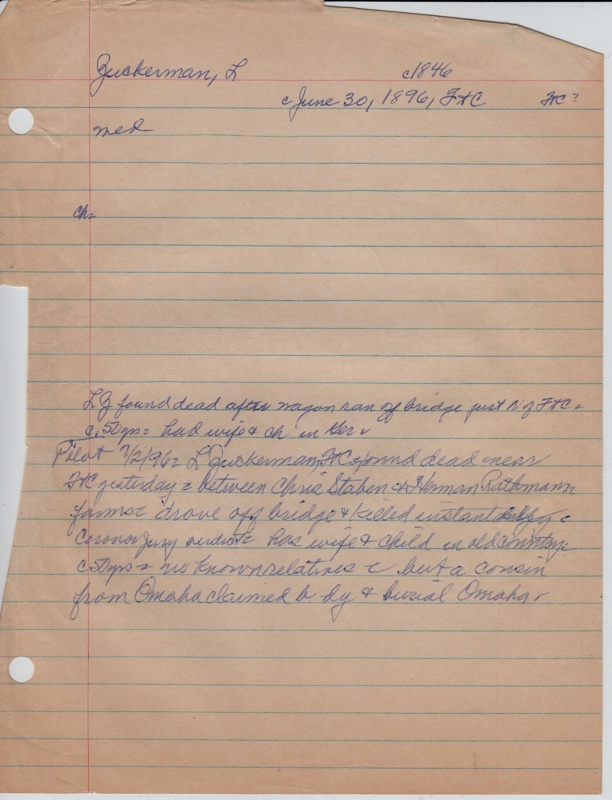 Zuckerman, L c1846
c June 30, 1896, FtC FtC?
med
ch=
LZ found dead after wagon ran off bridge just N of FtC =
c. 50 yrs = had wife & ch in Ger =
Pilot 7/2/96 = L Zuckerman, FtC found dead near
FtC yesterday = between Chris Staben & Herman Rathmann
farms = drove off bridge & killed instantly =
Coroner Jury verdict = has wife & child in old country =
c 50 yrs = no known relatives = but a cousin
from Omaha claimed body & burial Omaha.